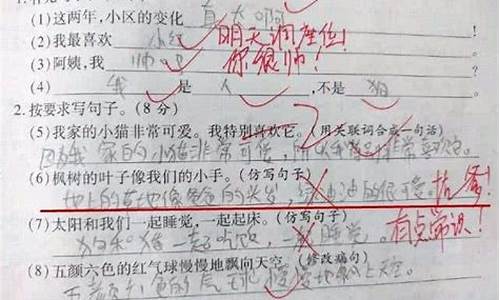 (1)这两年,小区的变化真大啊
(2)我最喜欢小红 明天调座位!
(3)阿姨,我帅吧 你很帅!
(4)我是人,不是狗
2.按要求写句子。(8分)
(5)我家的小猫非常可爱。我特别喜欢它。(用关联词合成一句话)
因为我家的小猫非常可爱,所以我特别非常喜欢它。
(6)枫树的叶子像我们的小手。(仿写句子)
地上的草地像爸爸的头发,绿油油的很可爱。
(7)太阳和我们一起睡觉,一起起床。(仿写句子)
狗和猪一起吃饭,一起睡觉。有点常识!
(8)五颜六色的红气球慢慢地飘向天空。(修改病句)
五颜六色的气球慢慢地飘上天空。